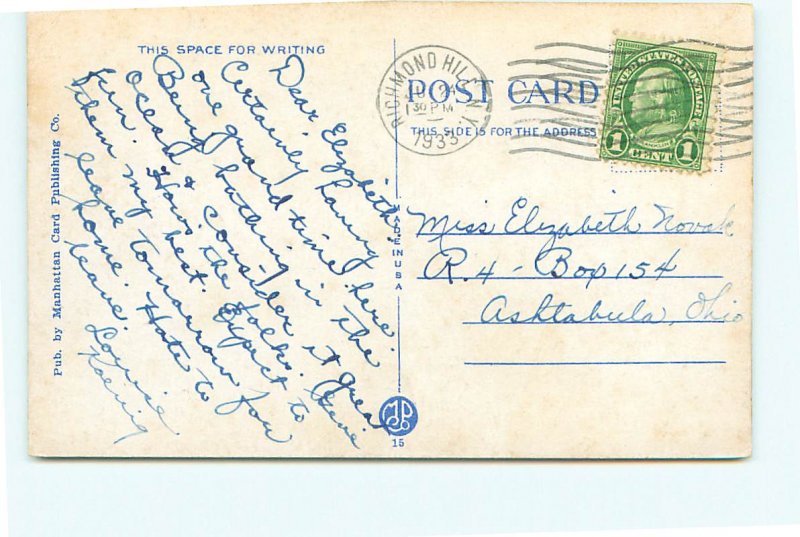 THIS SPACE FOR WRITING
Dear Elizabeth:
Certainly having
one grand time here.
Being bathing in the
ocean & consider it great
fun. How's the folks. Give
them my best. Expect to
leave tomorrow for
home. Hate to
leave.
Louise
Koenig
Pub. by Manhattan Card Publishing Co.
MADE IN USA
15
RICHMOND HILL N.Y.
24
30 PM
1933
POST CARD
THIS SIDE IS FOR THE ADDRESS
UNITED STATES POSTAGE
1 CENT 1
Miss Elizabeth Novak
R. 4 - Box 154
Ashtabula, Ohio